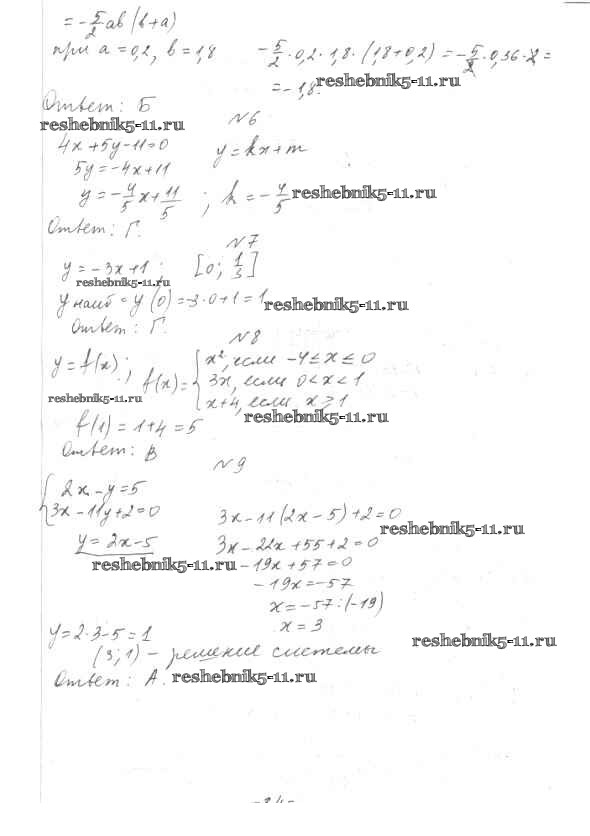 = -5/2 ab (b+a)
при a = 0,2, b = 1,8   -5/2 · 0,2 · 1,8 · (1,8+0,2) = -5/2 · 0,36 · 2 =
= -1,8.
reshebnik5-11.ru
Ответ: Б
reshebnik5-11.ru
№6
4x+5y-11=0   y=kx+m
5y=-4x+11
y=-4/5x+11/5 ; k=-4/5
reshebnik5-11.ru
Ответ: Г.
№7
y=-3x+1;   [0; 1/3]
reshebnik5-11.ru
y наиб = y (0) = -3·0+1=1
reshebnik5-11.ru
Ответ: Г.
№8
y=f(x);   f(x)= { x², если -4≤x≤0
3x, если 0<x<1
x+4, если x≥1
reshebnik5-11.ru
reshebnik5-11.ru
f(1)=1+4=5
Ответ: В
№9
{ 2x-y=5
3x-11y+2=0   3x-11(2x-5)+2=0
reshebnik5-11.ru
y=2x-5   3x-22x+55+2=0
reshebnik5-11.ru   -19x+57=0
-19x=-57
x=-57:(-19)
x=3
y=2·3-5=1
reshebnik5-11.ru
(3;1) - решение системы
Ответ: А.
reshebnik5-11.ru